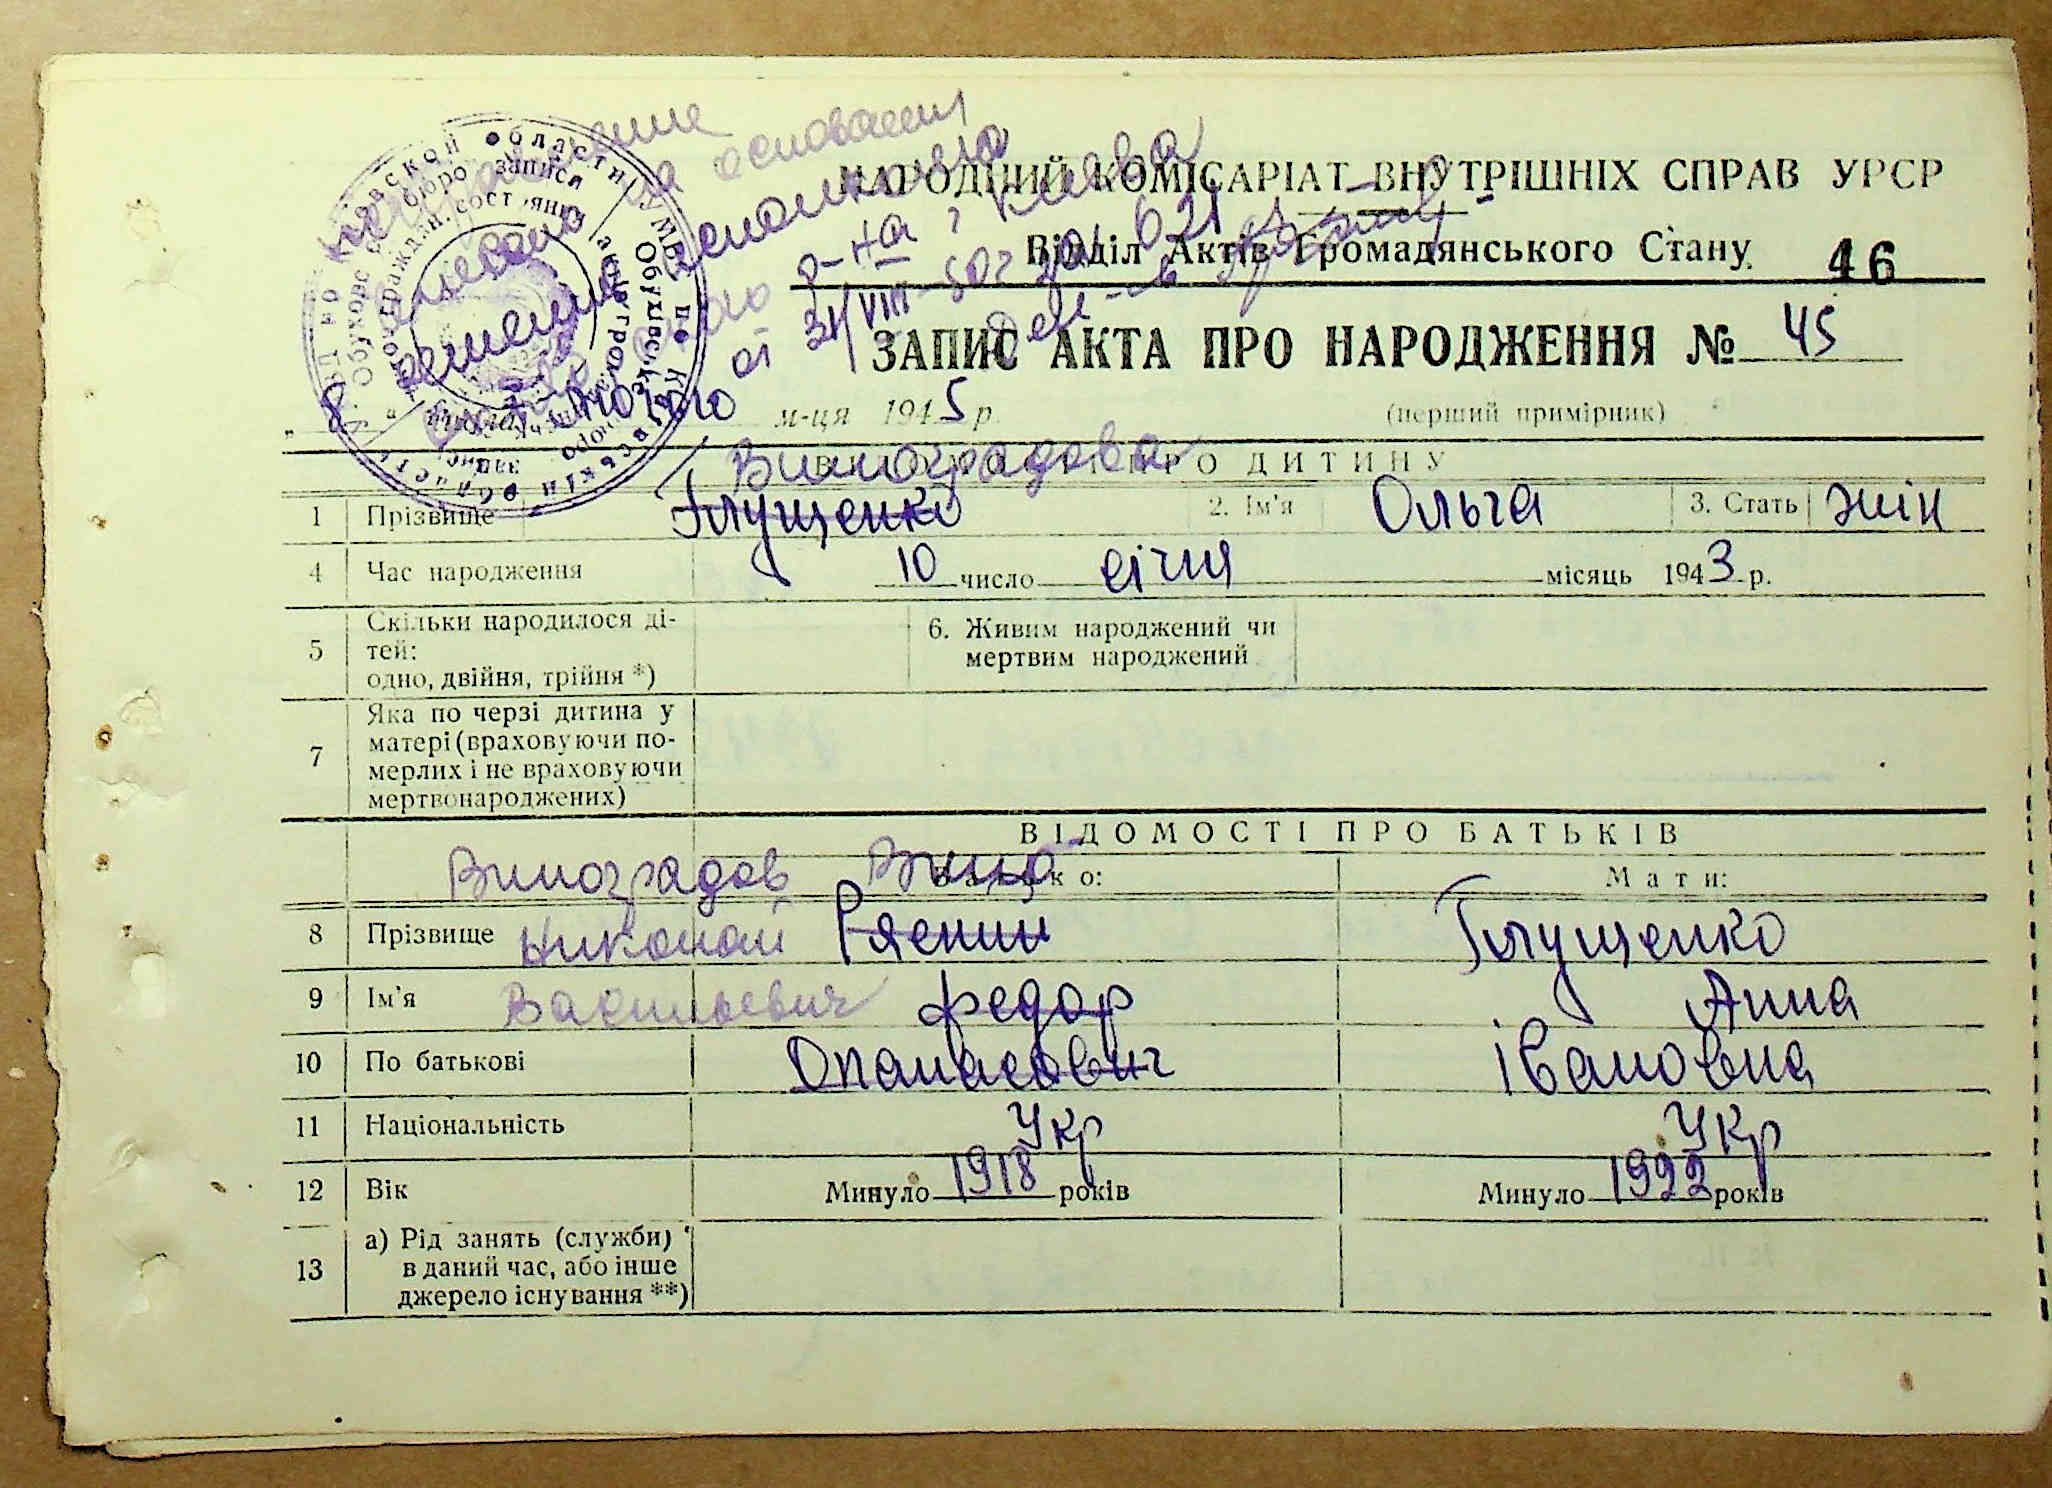 исправление
внесено на основании
решения исполкома
р-на г. Киева
от 31/VIII-50г за 621
НАРОДНИЙ КОМІСАРІАТ ВНУТРІШНІХ СПРАВ УРСР
Відділ Актів Громадянського Стану 46
ЗАПИС АКТА ПРО НАРОДЖЕННЯ № 45
„ 8 " числа лютого м-ця 1945 р. (перший примірник)
ВІДОМОСТІ ПРО ДИТИНУ
Виноградова
1 Прізвище Глущенко 2. Ім'я Ольга 3. Стать жін
4 Час народження 10 число січня місяць 1943 р.
5 Скільки народилося ді-
тей:
одно, двійня, трійня *)
6. Живим народжений чи
мертвим народжений
7 Яка по черзі дитина у
матері (враховуючи по-
мерлих і не враховуючи
мертвонароджених)
ВІДОМОСТІ ПРО БАТЬКІВ
Виноградов
Батько: Мати:
8 Прізвище Николай Глущенко
9 Ім'я Васильевич Федор Анна
10 По батькові Опанасович Івановна
11 Національність Укр Укр
12 Вік Минуло 1918 років Минуло 1922 років
13 а) Рід занять (служби)
в даний час, або інше
джерело існування **)